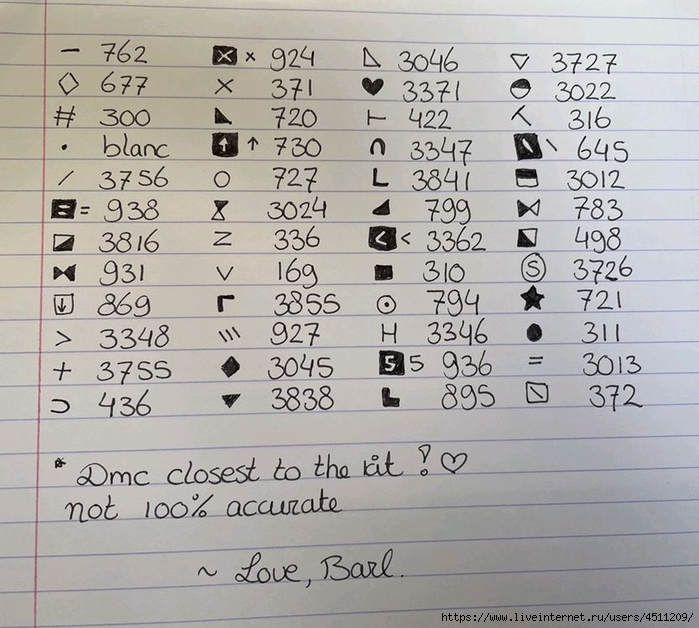 — 762 ☒ × 924 ◺ 3046 ▽ 3727
◇ 677 × 371 ♥ 3371 ◓ 3022
# 300 ◣ 720 ⊢ 422 316
• blanc ↑ ↑ 730 ∩ 3347 \ \ 645
/ 3756 ○ 727 L 3841 ⬒ 3012
= = 938 ⧗ 3024 ◢ 799 ⋈ 783
◪ 3816 Z 336 < < 3362 ⬕ 498
⧓ 931 V 169 ■ 310 Ⓢ 3726
↓ 869 ┏ 3855 ⊙ 794 ★ 721
> 3348 \\\ 927 H 3346 ● 311
+ 3755 ◆ 3045 5 5 936 = 3013
⊃ 436 ▼ 3838 L 895 ⧅ 372
* Dmc closest to the kit ! ♡
not 100% accurate
~ Love, Barl.
https://www.liveinternet.ru/users/4511209/